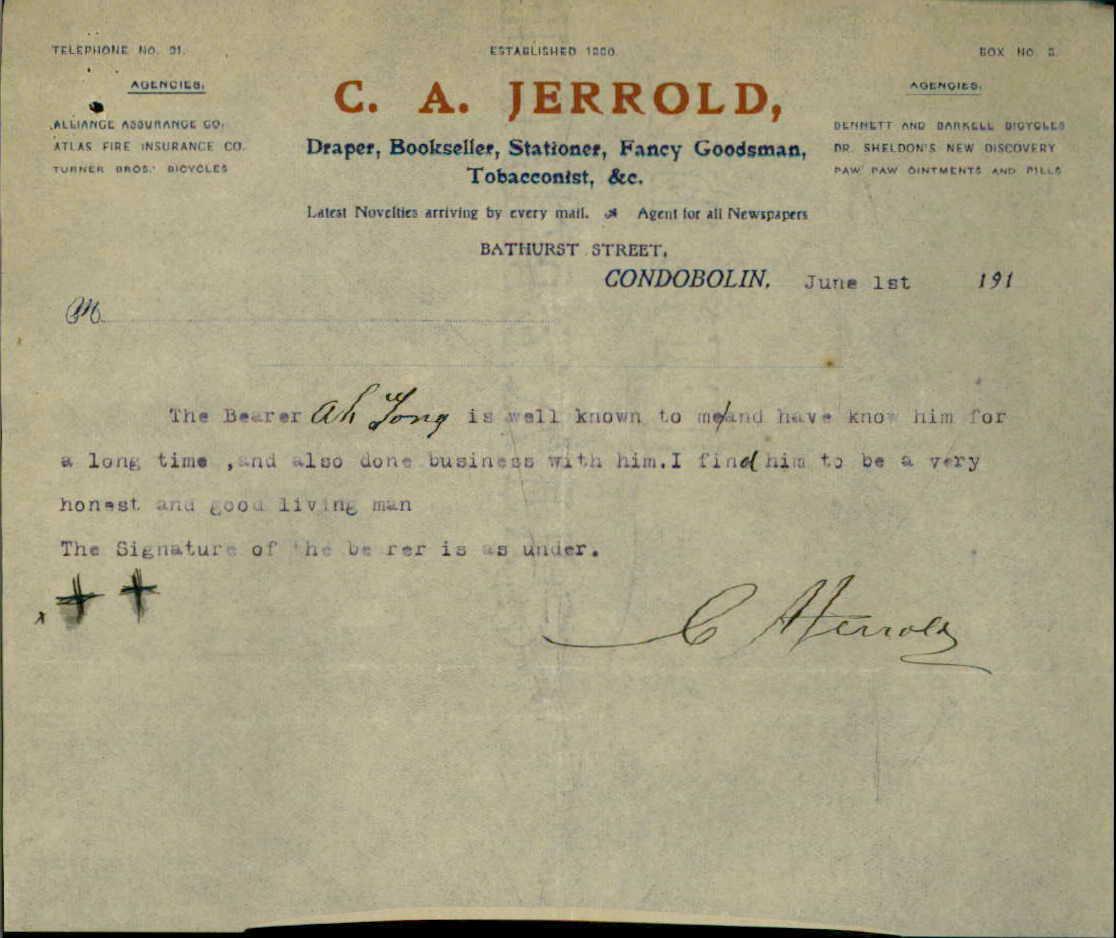 TELEPHONE NO. 21. ESTABLISHED 1890. BOX NO. 3.
AGENCIES. AGENCIES.
C. A. JERROLD,
ALLIANCE ASSURANCE CO. BENNETT AND BARKELL BICYCLES
ATLAS FIRE INSURANCE CO. Draper, Bookseller, Stationer, Fancy Goodsman, DR. SHELDON'S NEW DISCOVERY
TURNER BROS.' BICYCLES Tobacconist, &c. PAW PAW OINTMENTS AND PILLS
Latest Novelties arriving by every mail. Agent for all Newspapers
BATHURST STREET,
CONDOBOLIN, June 1st 191
M
The Bearer Ah Yong is well known to me/and have know him for
a long time ,and also done business with him.I find him to be a very
honest and good living man
The Signature of the bearer is as under.
x + +
C A Jerrold